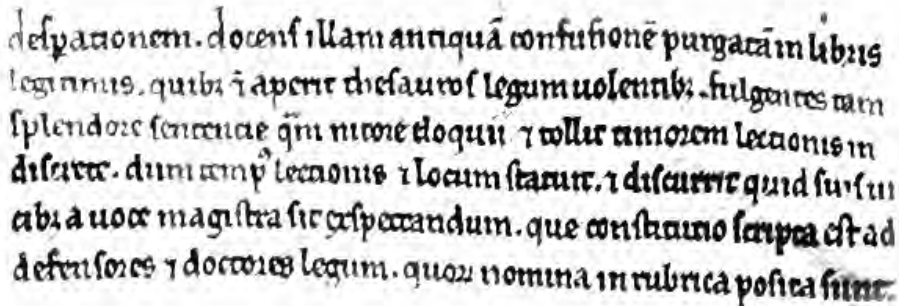 desꝑationem. docens illam antiquā confusionē purgatā in libris
legitimis. quibꝫ ī aperit thesauros legum uolentibꝫ. fulgentes tam
splendore sentencie q̄m nitore eloquii ⁊ tollit timorem lectionis in
discrete. dum temp᷒ lectionis ⁊ locum statuit. ⁊ discutit quid
a uoce magistra sit exspectandum. que constitutio scripta est ad
defensores ⁊ doctores legum. quoꝝ nomina in rubrica posita sunt.